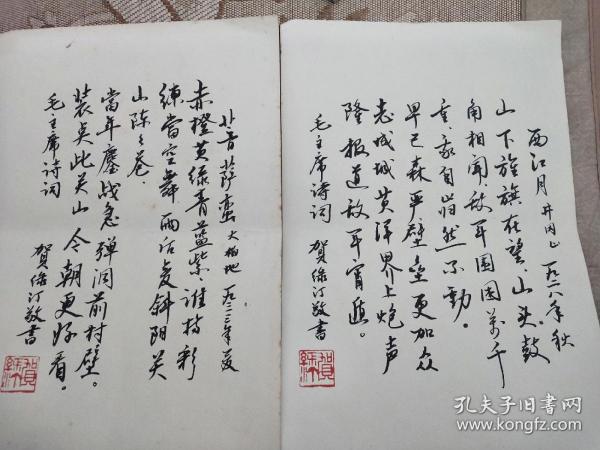 西江月 井冈山 一九二八年秋
山下旌旗在望，山头鼓
角相闻，敌军围困万千
重，我自岿然不动。
早已森严壁垒更加众
志成城黄洋界上炮声
隆报道敌军宵遁。
毛主席诗词 贺绿汀敬書
菩萨蛮 大柏地 一九三三年夏
赤橙黄绿青蓝紫，谁持彩
練當空舞雨后复斜阳关
山陈々苍．
當年鏖战急弹洞前村壁。
装点此关山 今朝更好看。
毛主席诗词
贺绿汀敬書
孔夫子旧书网
www.kongfz.com